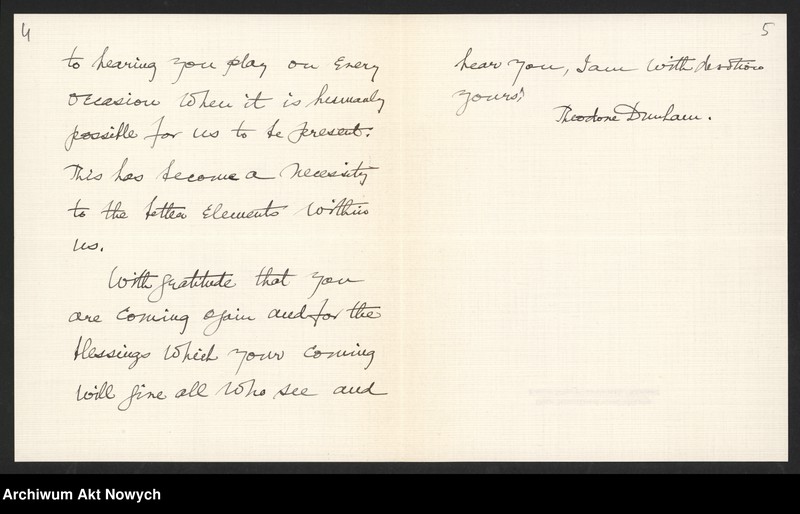 4
to hearing you play on every
occasion when it is humanly
possible for us to be present.
This has become a necessity
to the better elements within
us.
With gratitude that you
are coming again and for the
blessings which your coming
will give all who see and
5
hear you, I am with devotion
yours,
Theodore Dunham.
Archiwum Akt Nowych